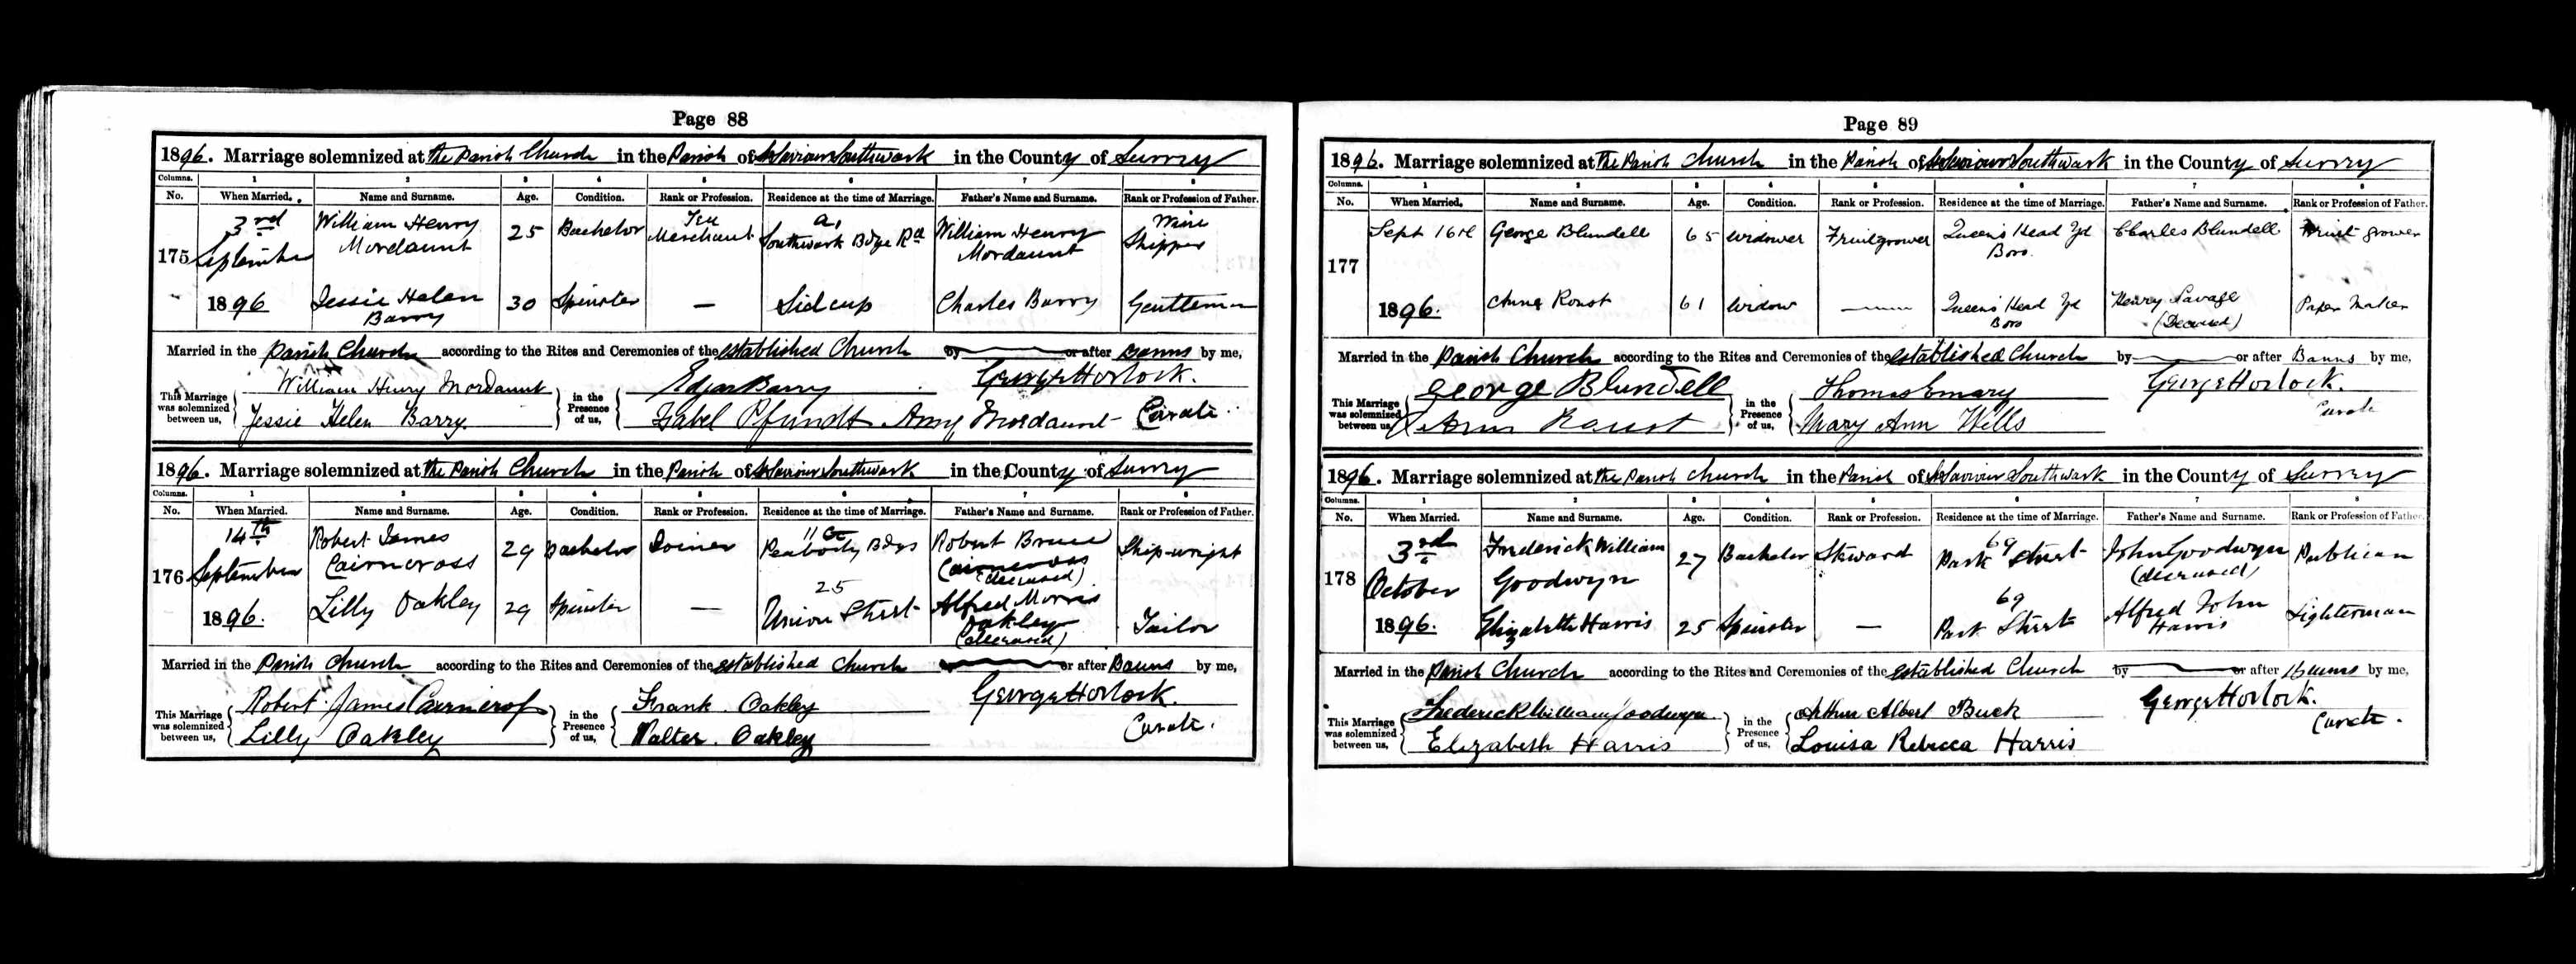 Page 88
1896. Marriage solemnized at the Parish Church in the Parish of St Saviour Southwark in the County of Surrey
Columns. 1 2 3 4 5 6 7 8
No. When Married. Name and Surname. Age. Condition. Rank or Profession. Residence at the time of Marriage. Father's Name and Surname. Rank or Profession of Father.
175 3rd September 1896 William Henry Mordaunt 25 Bachelor Tea Merchant Southwark Bdge Rd William Henry Mordaunt Wine Shipper
Jessie Helen Barry 30 Spinster — Sidcup Charles Barry Gentleman
Married in the Parish Church according to the Rites and Ceremonies of the established Church by or after Banns by me,
This Marriage was solemnized between us, William Henry Mordaunt in the Presence of us, Edgar Barry George Horlock.
Jessie Helen Barry Isabel Pfundt Amy Mordaunt Curate.
1896. Marriage solemnized at the Parish Church in the Parish of St Saviour Southwark in the County of Surrey
Columns. 1 2 3 4 5 6 7 8
No. When Married. Name and Surname. Age. Condition. Rank or Profession. Residence at the time of Marriage. Father's Name and Surname. Rank or Profession of Father.
176 14th September 1896. Robert James Cairncross 29 Bachelor Joiner 11 G Peabody Bdgs Robert Bruce Cairncross (deceased) Ship-wright
Lilly Oakley 29 Spinster — 25 Union Street Alfred Morris Oakley (deceased) Tailor
Married in the Parish Church according to the Rites and Ceremonies of the established Church or after Banns by me,
This Marriage was solemnized between us, Robert James Cairncross in the Presence of us, Frank Oakley George Horlock.
Lilly Oakley Walter Oakley Curate.
Page 89
1896. Marriage solemnized at the Parish Church in the Parish of St Saviour Southwark in the County of Surrey
Columns. 1 2 3 4 5 6 7 8
No. When Married. Name and Surname. Age. Condition. Rank or Profession. Residence at the time of Marriage. Father's Name and Surname. Rank or Profession of Father.
177 Sept 16th 1896. George Blundell 65 Widower Fruitgrower Queens Head Yd Boro. Charles Blundell Fruit grower
Anne Roust 61 Widow — Queens Head Yd Boro Henry Savage (Deceased) Paper Maker
Married in the Parish Church according to the Rites and Ceremonies of the established Church by or after Banns by me,
This Marriage was solemnized between us, George Blundell in the Presence of us, Thomas Emary George Horlock.
X Ann Roust Mary Ann Wells Curate
1896. Marriage solemnized at the Parish Church in the Parish of St Saviour Southwark in the County of Surrey
Columns. 1 2 3 4 5 6 7 8
No. When Married. Name and Surname. Age. Condition. Rank or Profession. Residence at the time of Marriage. Father's Name and Surname. Rank or Profession of Father.
178 3rd October 1896. Frederick William Goodwyn 27 Bachelor Steward 69 Park Street John Goodwyn (deceased) Publican
Elizabeth Harris 25 Spinster — 69 Park Street Alfred John Harris Lighterman
Married in the Parish Church according to the Rites and Ceremonies of the established Church by or after Banns by me,
This Marriage was solemnized between us, Frederick William Goodwyn in the Presence of us, Arthur Albert Buck George Horlock.
Elizabeth Harris Louisa Rebecca Harris Curate.